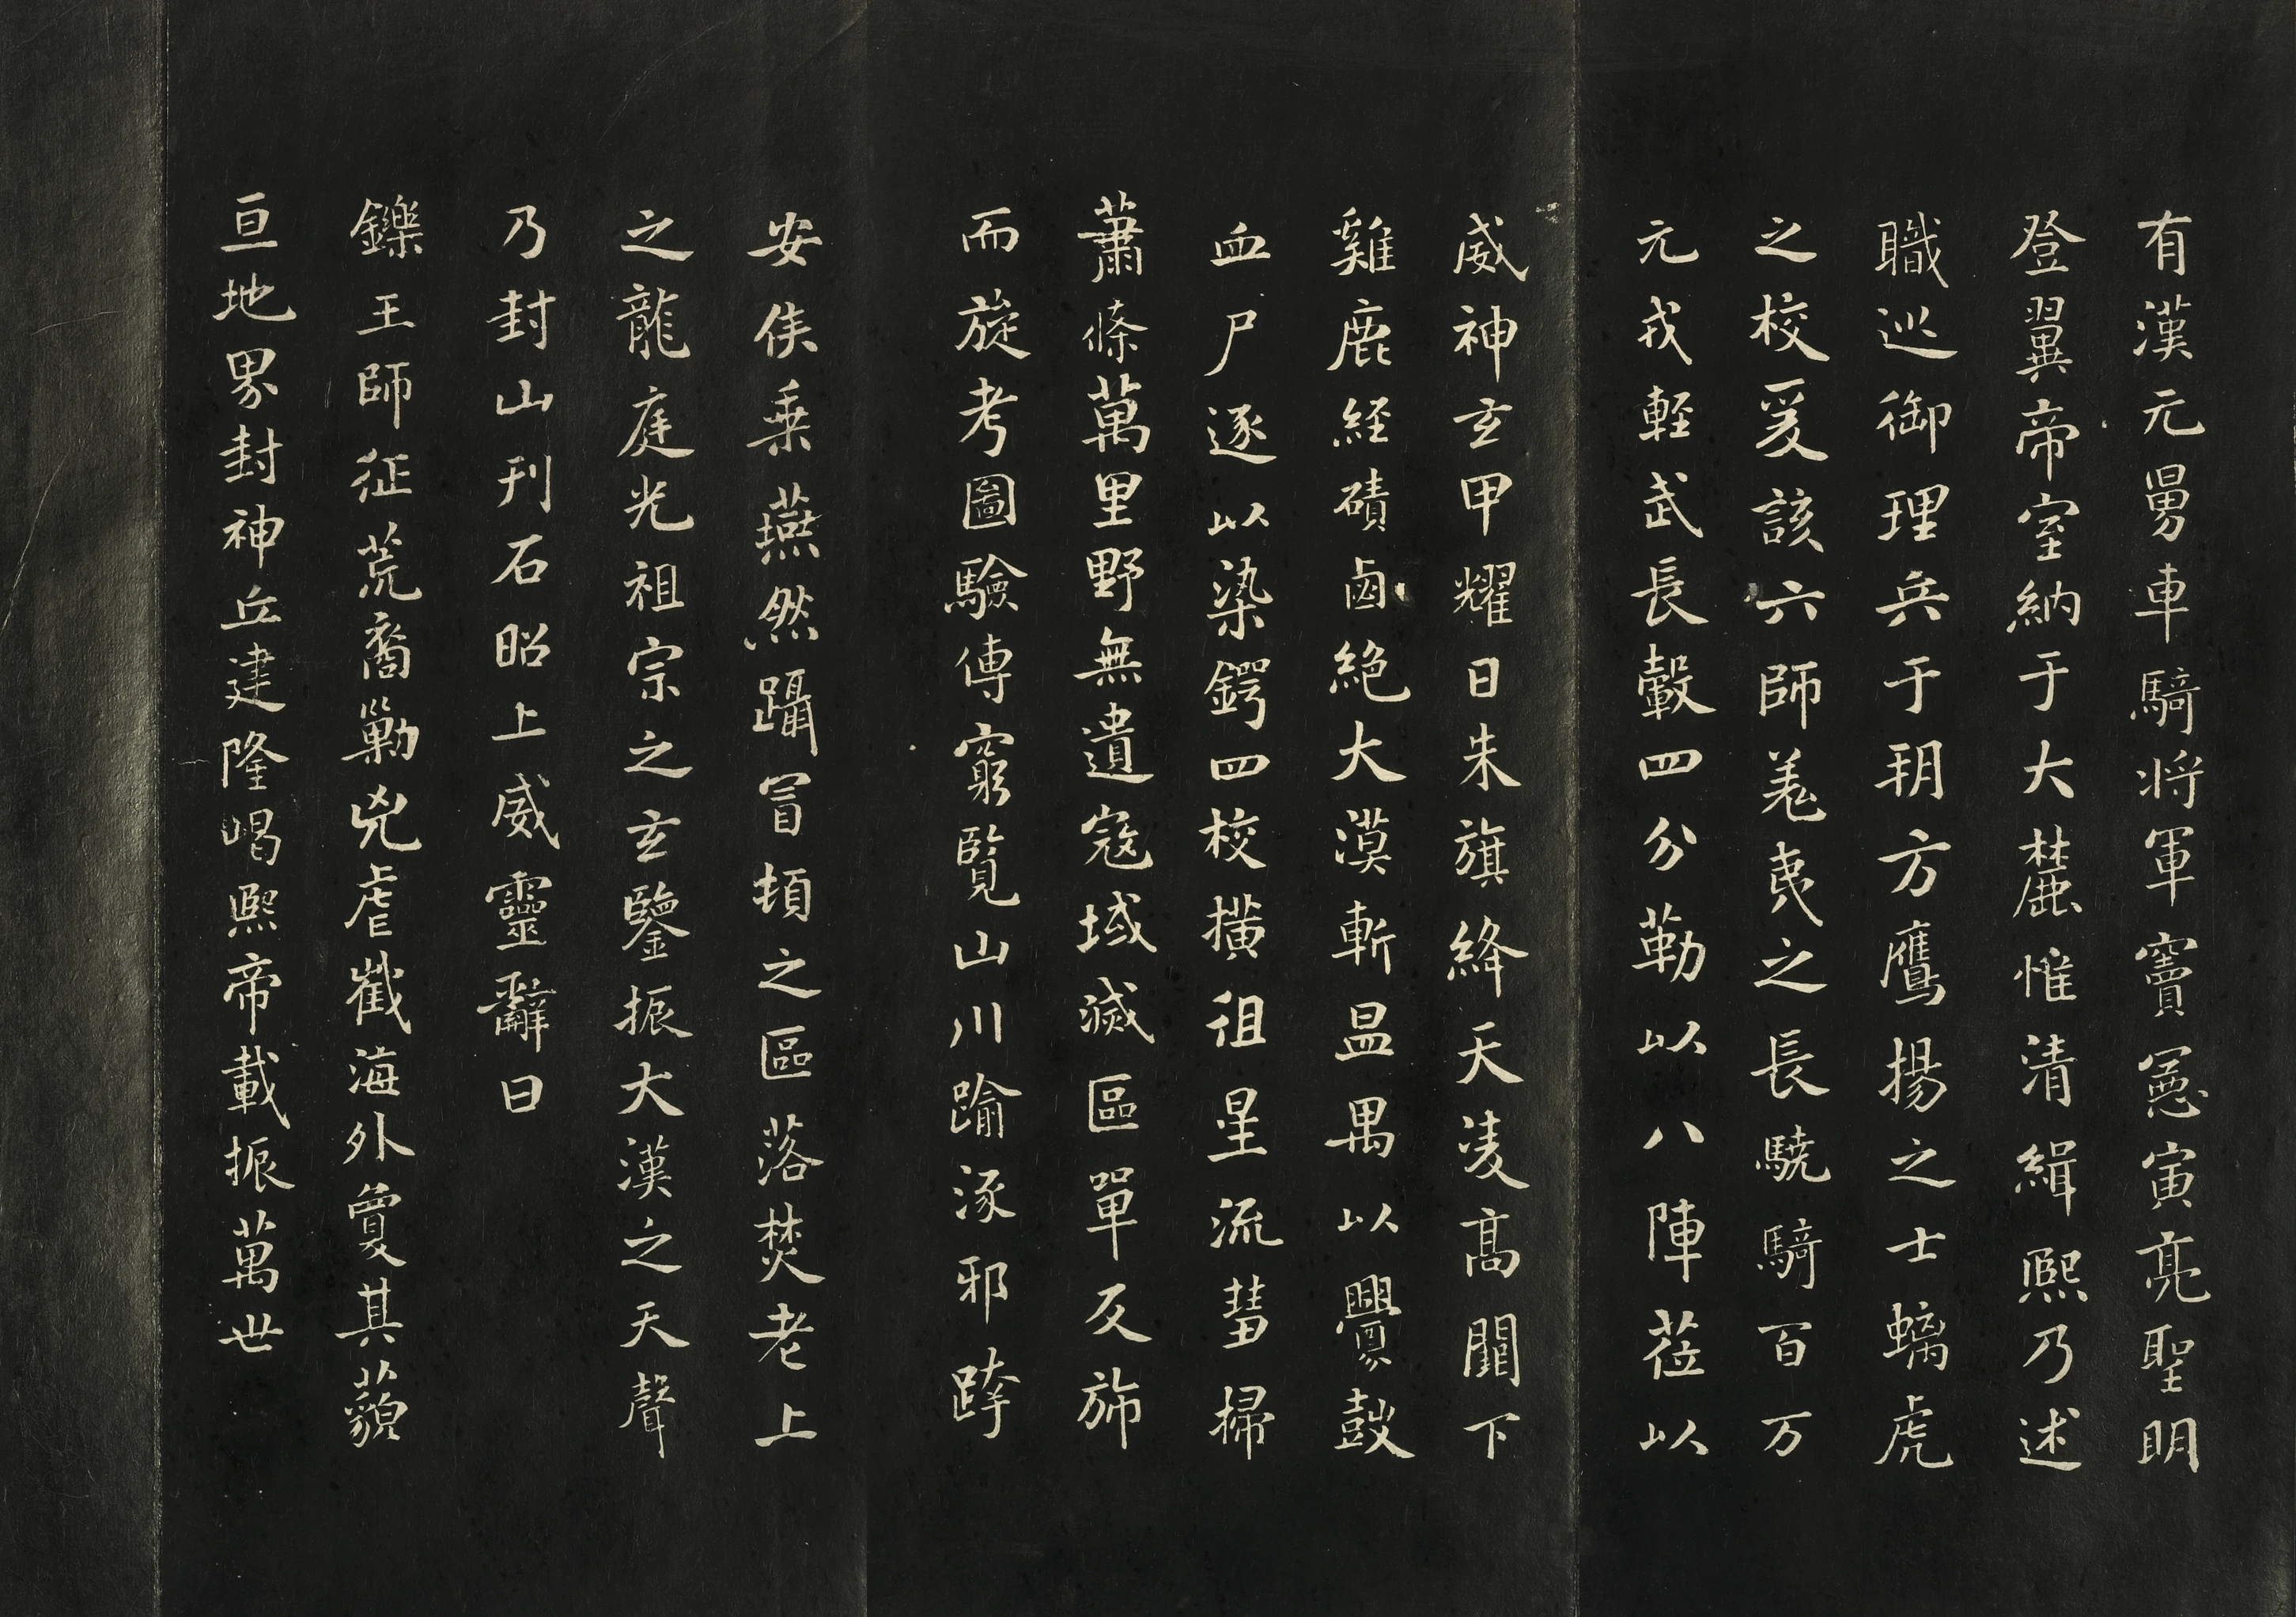 有漢元舅車騎将軍竇憲寅亮聖明
登翼帝室納于大麓惟清緝熙乃述
職巡御理兵于朔方鷹揚之士螭虎
之校爰該六師羌夷之長驍騎百万
元戎軽武長轂四分勒以八陣莅以
威神玄甲耀日朱旗絳天淩髙闕下
雞鹿経磧鹵絕大漠斬昷禺以釁鼓
血尸逐以染鍔四校撗徂星流彗掃
蕭條萬里野無遺寇域滅區單反斾
而旋考圖驗傳窮覽山川踰涿邪跨
安侯乗燕然躡冒頓之區落焚老上
之龍庭光祖宗之玄鑒振大漢之天聲
乃封山刊石昭上威靈辭曰
鑠王師征荒裔勦兇虐截海外敻其藐
亘地界封神丘建隆嵑熙帝載振萬世